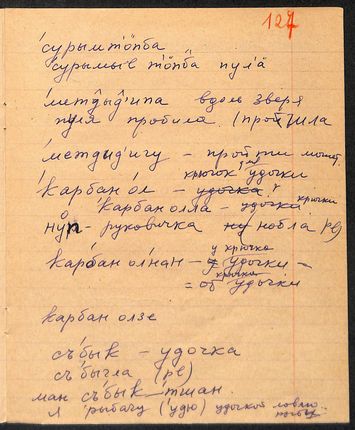 127
сурымтӧпба
сурымыв тӧпба пулӓ
метдыд'ипа вдоль зверя
пуля пробила. (прошила
метдид'игу – пройти может.
крючок для удочки
карбан ол – удочка
карбан олла – удочки крючки
нуп – рукавичка нобла ре)
у крючка
карбан олнан – у удочки –
крючка
= об удочки
карбан олзе
съ̄бык – удочка
съ̄быгла (ре)
ман съ̄бык-тшан
я рыбачу (удю) удочкой ловлю